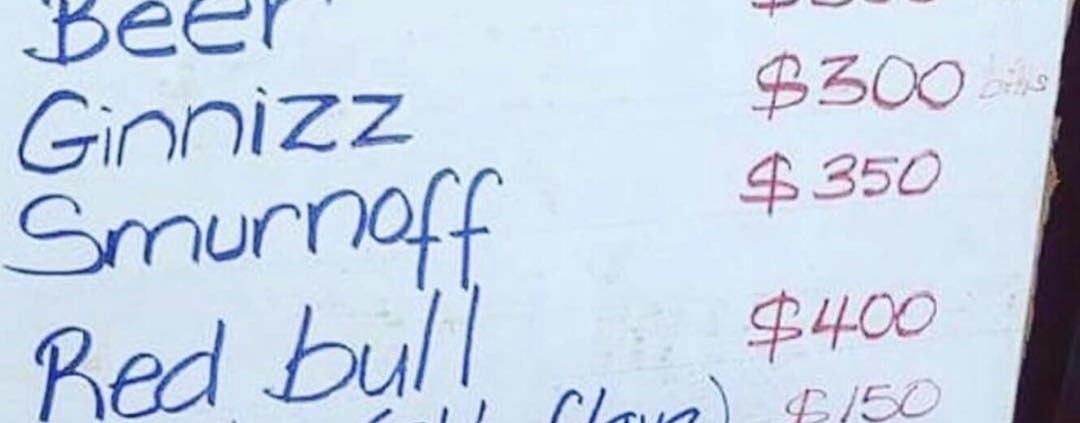 Beer
Ginnizz $300
Smurnoff $350
Red bull $400
$150